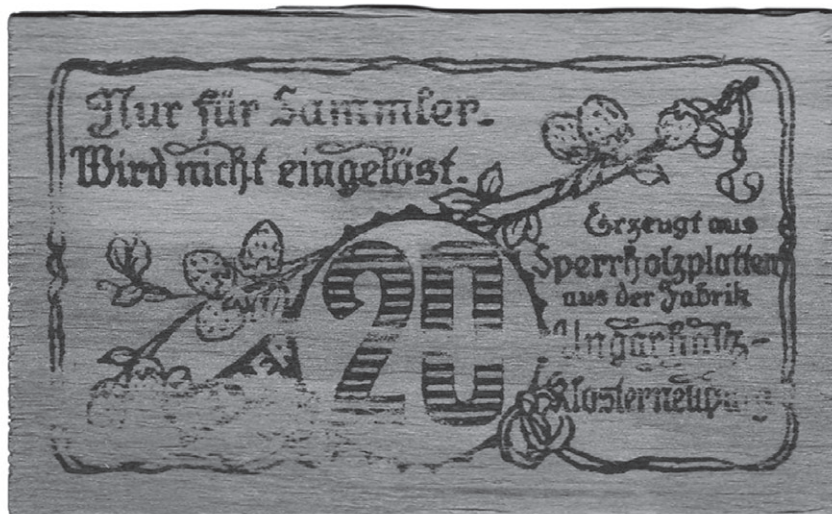 Nur für Sammler.
Wird nicht eingelöst.
20
Erzeugt aus
Sperrholzplatten
aus der Fabrik
Klosterneuburg